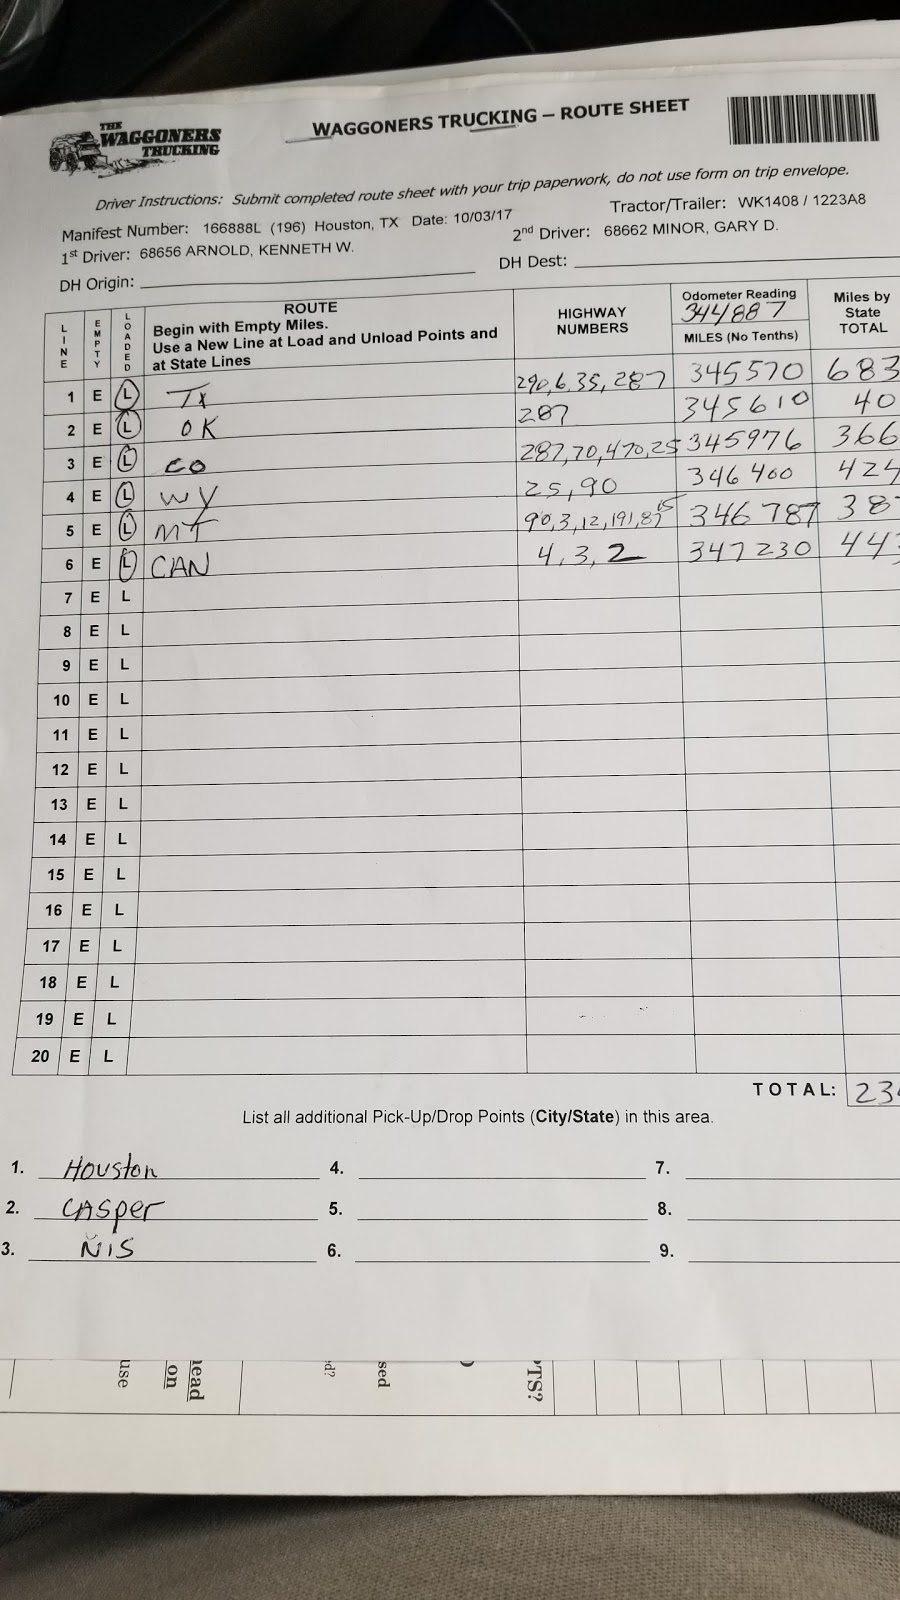 THE
WAGGONERS
TRUCKING
WAGGONERS TRUCKING – ROUTE SHEET
Driver Instructions: Submit completed route sheet with your trip paperwork, do not use form on trip envelope.
Manifest Number: 166888L (196) Houston, TX Date: 10/03/17 Tractor/Trailer: WK1408 / 1223A8
1st Driver: 68656 ARNOLD, KENNETH W. 2nd Driver: 68662 MINOR, GARY D.
DH Origin: DH Dest:
LINE EMPTY LOADED ROUTE HIGHWAY NUMBERS Odometer Reading Miles by State TOTAL
Begin with Empty Miles. 344887
Use a New Line at Load and Unload Points and MILES (No Tenths)
at State Lines
1 E L TX 290,6,35,287 345570 683
2 E L OK 287 345610 40
3 E L CO 287,70,470,25 345976 366
4 E L WY 25,90 346400 424
5 E L MT 90,3,12,191,87 15 346787 38
6 E L CAN 4,3,2 347230 44
7 E L
8 E L
9 E L
10 E L
11 E L
12 E L
13 E L
14 E L
15 E L
16 E L
17 E L
18 E L
19 E L
20 E L
TOTAL: 23
List all additional Pick-Up/Drop Points (City/State) in this area.
1. Houston 4. 7.
2. CASPER 5. 8.
3. NIS 6. 9.
use
on
lead
d?
sed
TS?